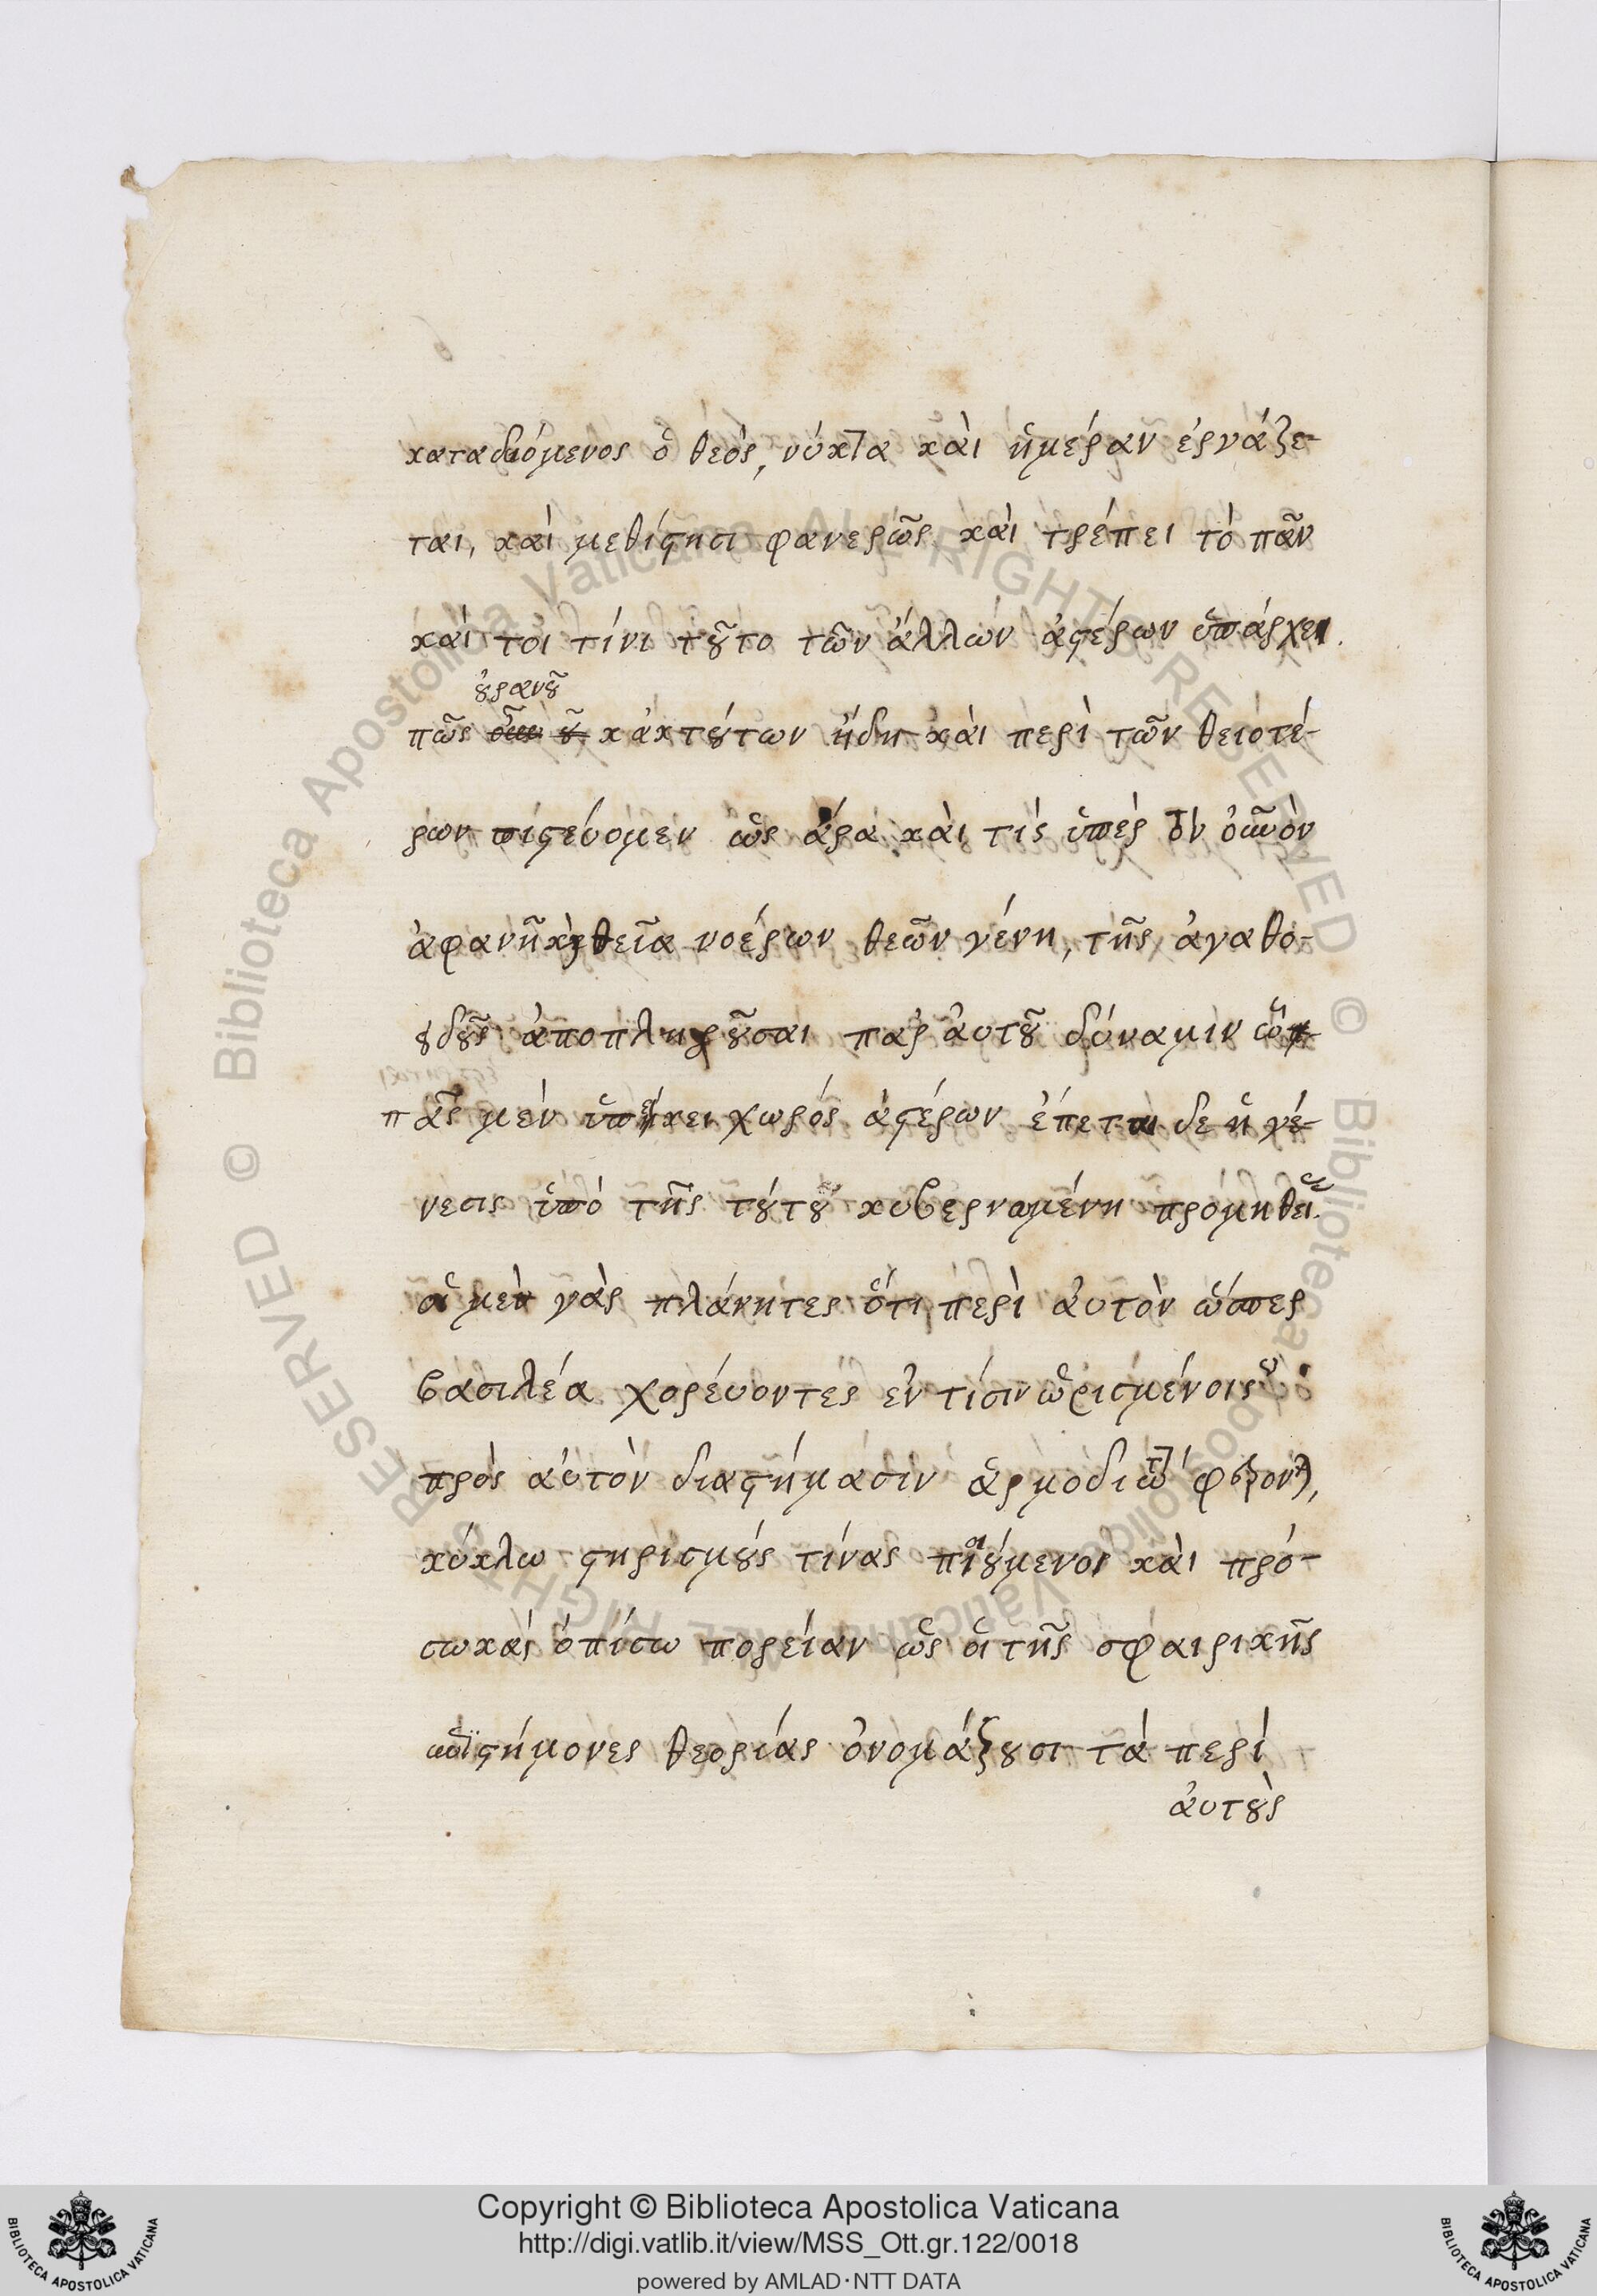 καταδυόμενος ὁ θεὸς, νύκτα καὶ ἡμέραν ἐργάζε-
ται, καὶ μεθίστησι φανερῶς καὶ τρέπει τὸ πᾶν
καί τοι τίνι τοῦτο τῶν ἄλλων ἀστέρων ὑπάρχει.
οὐρανοῦ
πῶς κἀκ τούτων ἤδη καὶ περὶ τῶν θειοτέ-
ρων πιστεύομεν ὡς ἄρα καὶ τίς ὑπὲρ τὸν
ἀφανῆ καὶ θεῖα νοέρων θεῶν γένη, τῆς ἀγαθο-
ειδοῦς ἀποπληροῦσαι παρ αὐτοῦ δύναμιν ὧ
πᾶς μὲν ὑπείκει χωρός ἀστέρων ἕπεται δε ἡ γέ-
νεσις ὑπὸ τῆς τούτου κυβερναμένη προμηθεί
οἱ μὲν γὰρ πλάνητες ὅτι περὶ αὐτὸν ὥσπερ
βασιλέα χορεύοντες ἐν τίσιν ὡρισμένοις
πρὸς αὐτὸν διαστήμασιν ἁρμοδιώτ φέρονται,
κύκλω στηρισμούς τίνας ποιούμενοι καὶ πρό-
σω κας ὀπίσω πορείαν ὡς οἱ τῆς σφαιρικῆς
ἐπιστήμονες θεορίας ὀνομάζουσι τά περί
αὐτοὺς
Copyright © Biblioteca Apostolica Vaticana
http://digi.vatlib.it/view/MSS_Ott.gr.122/0018
powered by AMLAD·NTT DATA